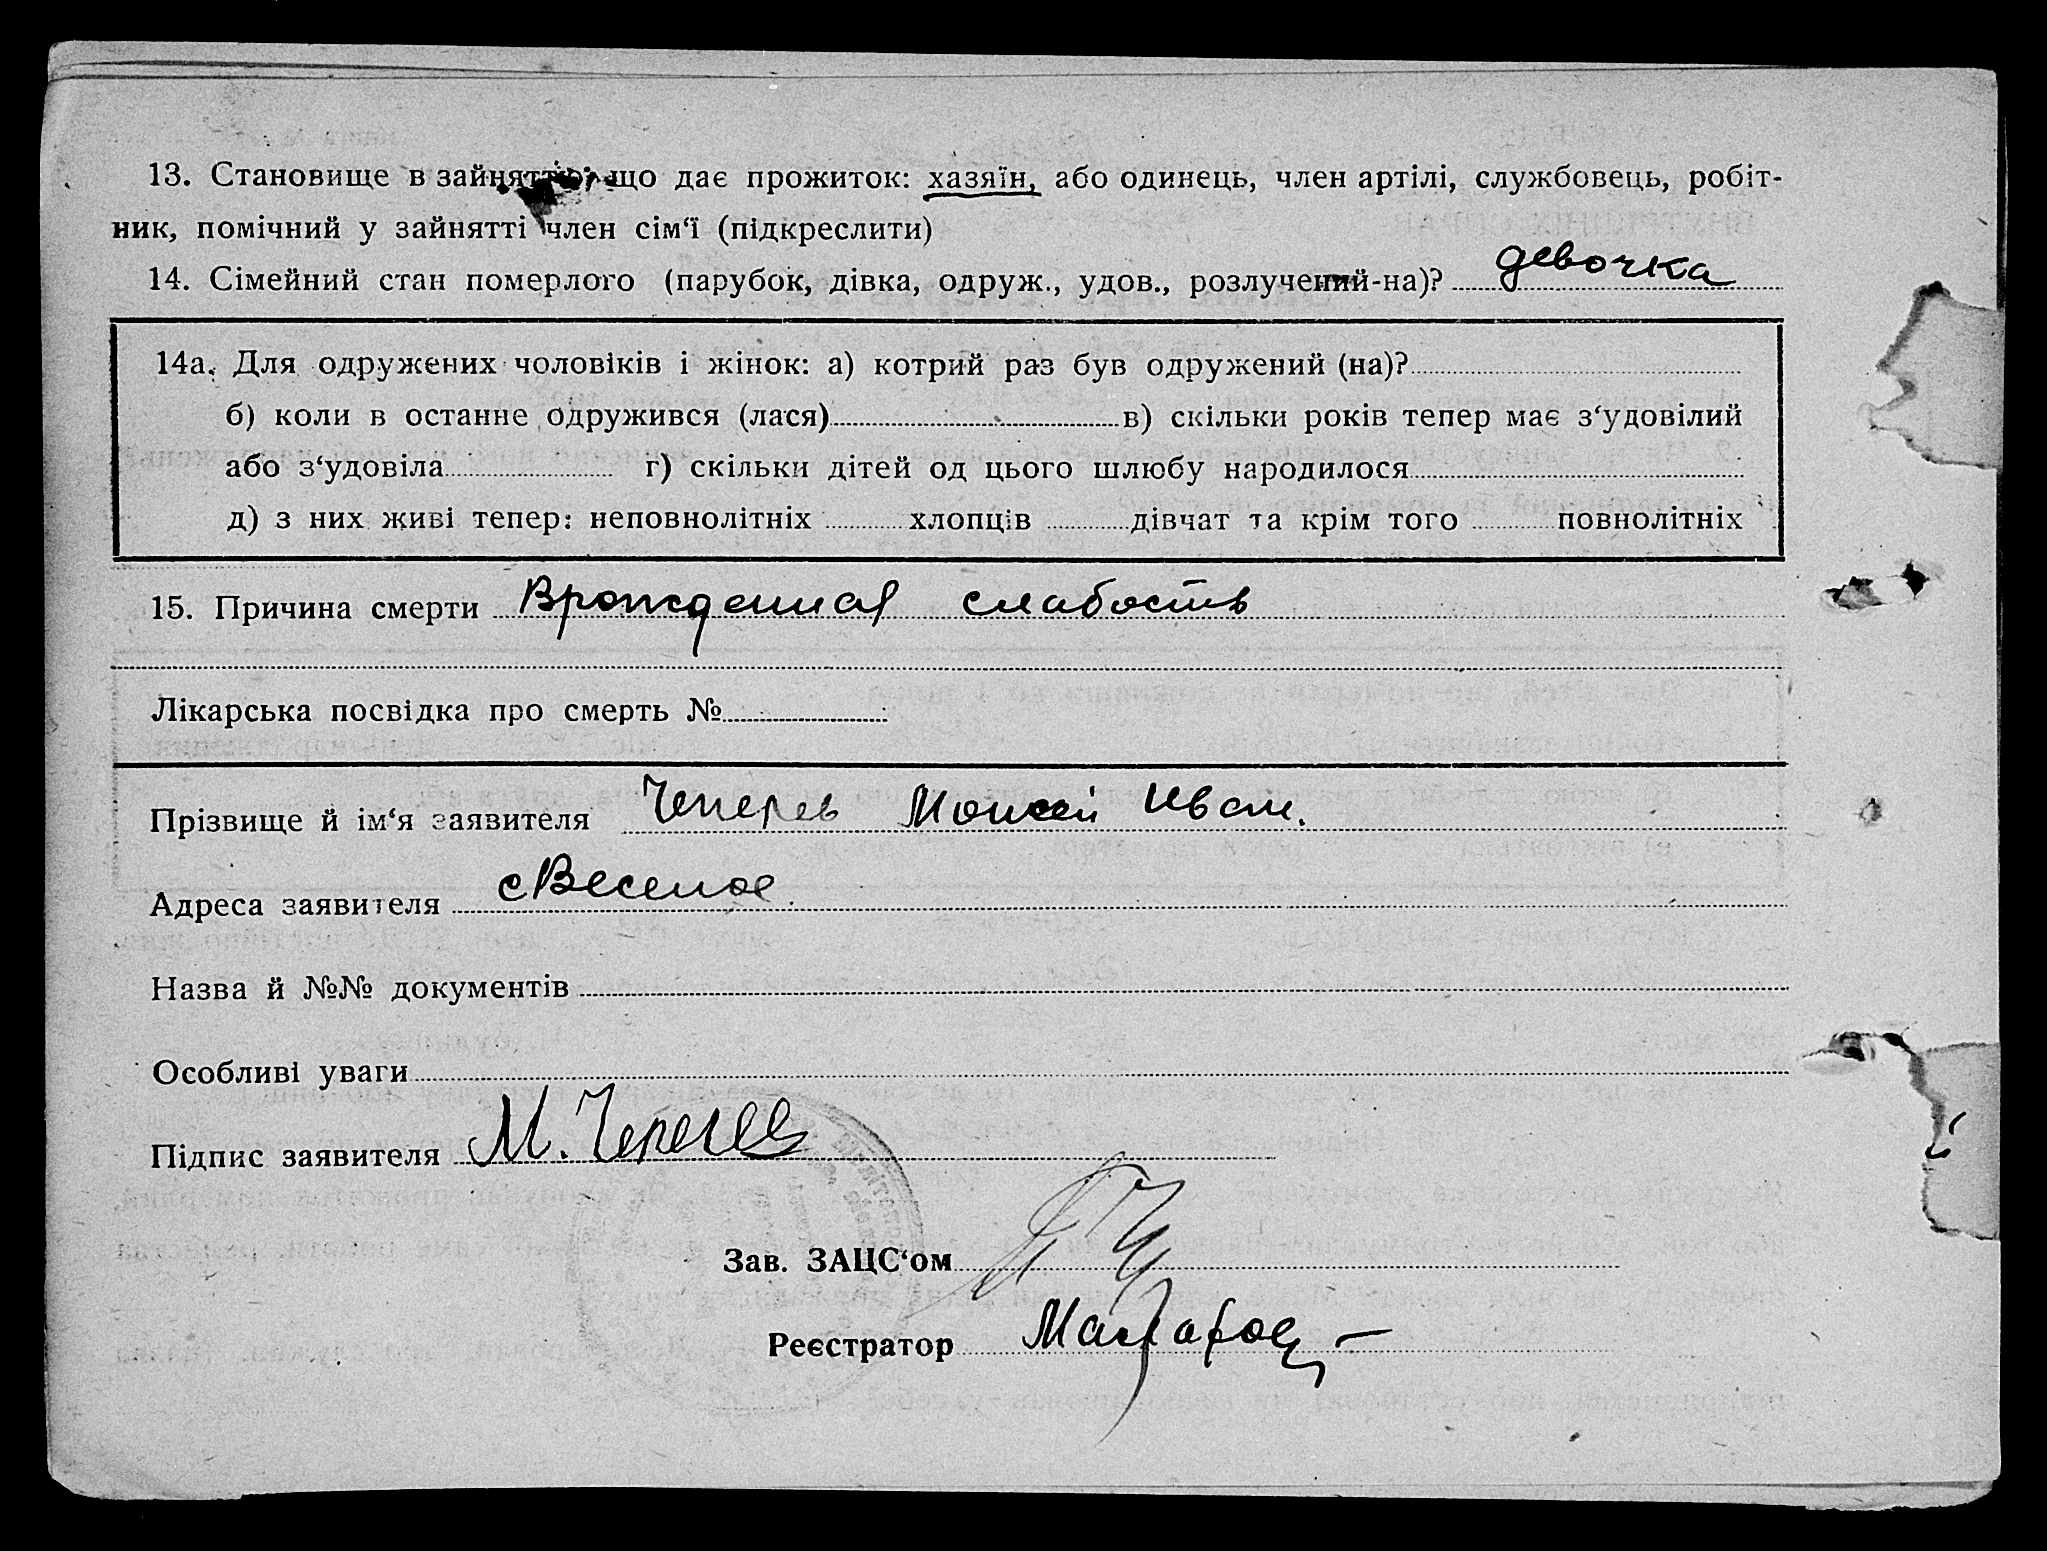 13. Становище в зайнятті, що дає прожиток: хазяїн, або одинець, член артілі, службовець, робіт-
ник, помічний у зайнятті член сім‘ї (підкреслити)
14. Сімейний стан померлого (парубок, дівка, одруж., удов., розлучений-на)? девочка
14а. Для одружених чоловіків і жінок: а) котрий раз був одружений (на)?
б) коли в останнє одружився (лася) в) скільки років тепер має з‘удовілий
або з‘удовіла г) скільки дітей од цього шлюбу народилося
д) з них живі тепер: неповнолітніх хлопців дівчат та крім того повнолітніх
15. Причина смерти Врожденная слабость
Лікарська посвідка про смерть №
Прізвище й ім‘я заявителя Моисей Иван.
Адреса заявителя с Веселое
Назва й №№ документів
Особливі уваги
Підпис заявителя М.
Зав. ЗАЦС‘ом
Реєстратор